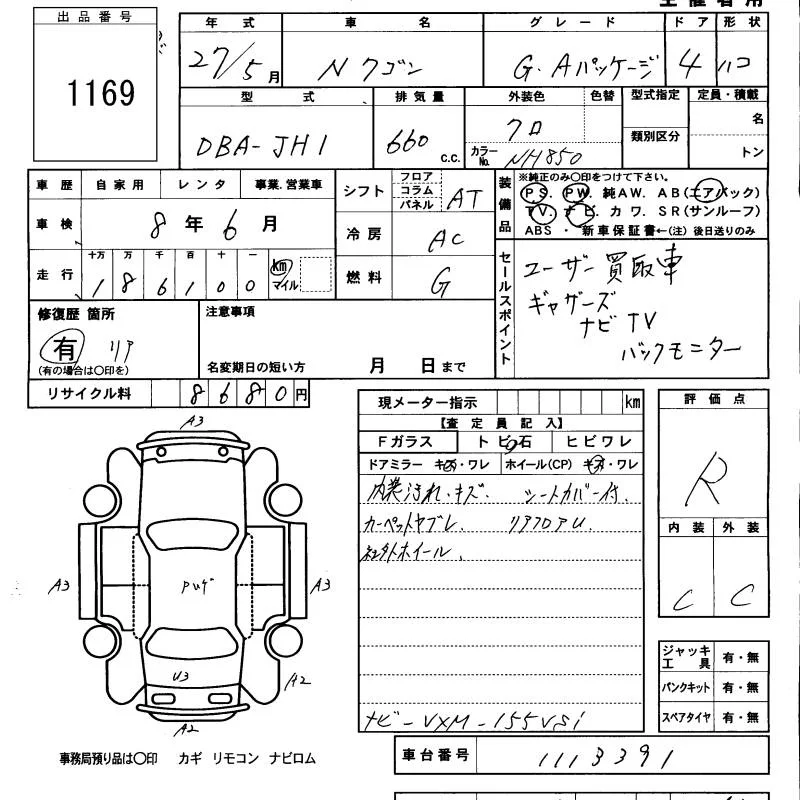 主催者用
出品番号
1169
年式 車名 グレード ドア 形状
27/5月 Nワゴン G.Aパッケージ 4 ハコ
型式 排気量 外装色 色替 型式指定 定員・積載
DBA-JH1 660 C.C. クロ 類別区分 名
カラーNo. NH850 トン
車歴 自家用 レンタ 事業.営業車
車検 8年6月
走行 十万 万 千 百 十 一 km マイル
1 8 6 1 0 0
シフト フロア コラム パネル AT
冷房 AC
燃料 G
装備品
※純正のみ〇印をつけて下さい。
PS. PW. 純AW. AB(エアバック)
TV. ナビ. カワ. SR(サンルーフ)
ABS ・ 新車保証書←(注)後日送りのみ
セールスポイント
ユーザー買取車
ギャザーズ
ナビ TV
バックモニター
修復歴 箇所
有 リア
(有の場合は〇印を)
注意事項
名変期日の短い方 月 日まで
リサイクル料 8680円
現メーター指示 km
【査定員記入】
Fガラス トビ石 ヒビワレ
ドアミラー キズ・ワレ ホイール(CP) キズ・ワレ
内装汚れ・キズ. シートカバー付.
カーペットヤブレ. リアフロアU.
社外ホイール.
ナビ-VXM-155VSi
評価点
R
内装 外装
C C
ジャッキ工具 有・無
パンクキット 有・無
スペアタイヤ 有・無
A3
A3
A3
U3
A2
A2
事務局預り品は〇印 カギ リモコン ナビロム
車台番号 1113391